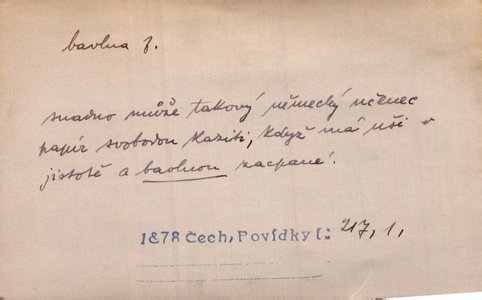 bavlna f.
snadno může takový německý učenec
papír svobodou kaziti, když má uši v
jistotě a bavlnou zacpané.
1878 Čech, Povídky I: 217, 1,